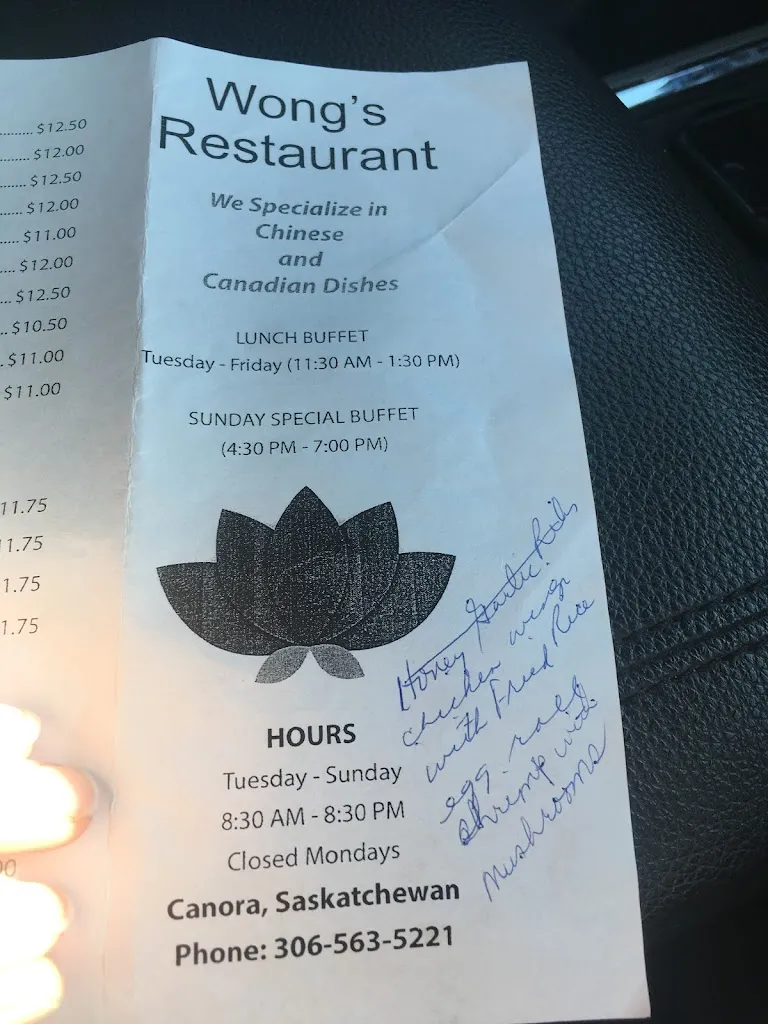 ......... $12.50
......... $12.00
....... $12.50
...... $12.00
..... $11.00
.... $12.00
... $12.50
.. $10.50
. $11.00
$11.00
11.75
11.75
1.75
1.75
Wong's
Restaurant
We Specialize in
Chinese
and
Canadian Dishes
LUNCH BUFFET
Tuesday - Friday (11:30 AM - 1:30 PM)
SUNDAY SPECIAL BUFFET
(4:30 PM - 7:00 PM)
HOURS
Tuesday - Sunday
8:30 AM - 8:30 PM
Closed Mondays
Canora, Saskatchewan
Phone: 306-563-5221
Honey Garlic Ribs
chicken wings
with Fried Rice
egg roll
shrimp with
mushrooms